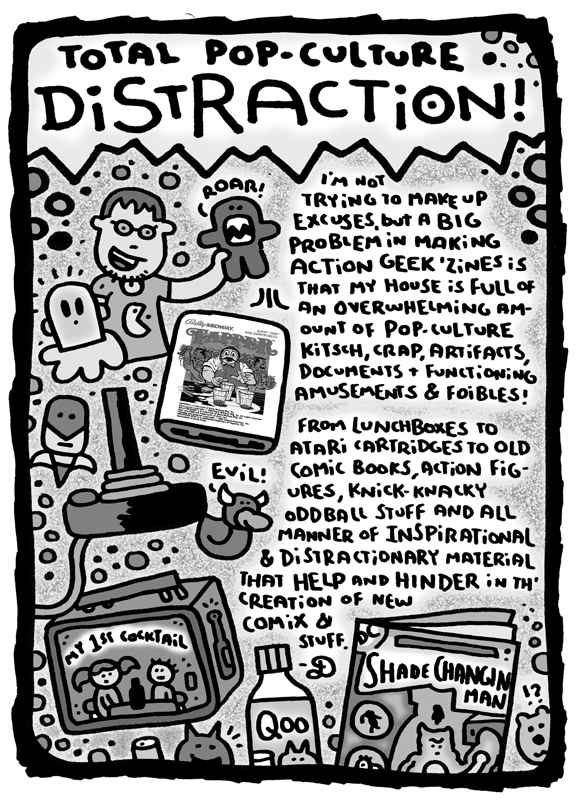 TOTAL POP-CULTURE
DISTRACTION!
ROAR!
I'M NOT
TRYING TO MAKE UP
EXCUSES, BUT A BIG
PROBLEM IN MAKING
ACTION GEEK 'ZINES IS
THAT MY HOUSE IS FULL OF
AN OVERWHELMING AM-
OUNT OF POP-CULTURE
KITSCH, CRAP, ARTIFACTS,
DOCUMENTS + FUNCTIONING
AMUSEMENTS & FOIBLES!
Bally MIDWAY.
TAPPER
FROM LUNCHBOXES TO
ATARI CARTRIDGES TO OLD
COMIC BOOKS, ACTION FIG-
URES, KNICK-KNACKY
ODDBALL STUFF AND ALL
MANNER OF INSPIRATIONAL
& DISTRACTIONARY MATERIAL
THAT HELP AND HINDER IN TH'
CREATION OF NEW
COMIX &
STUFF.
-D
EVIL!
MY 1ST COCKTAIL
QOO
DC
SHADE CHANGIN
MAN
!?